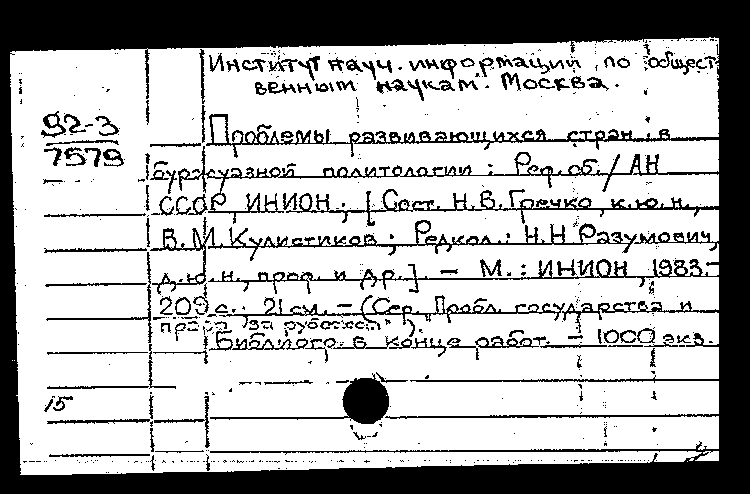 Институт науч. информации по общест
венным наукам. Москва.
92-3
7579
Проблемы развивающихся стран в
буржуазной политологии: Реф. об. / АН
СССР, ИНИОН; [Сост. Н.В. Гречко, к.ю.н.,
В.М. Кулистиков; Редкол.: Н.Н Разумович,
д.ю.н., проф. и др.]. – М.: ИНИОН, 1983.–
209 с.; 21 см. – (Сер. "Пробл. государства и
права за рубежом").
Библиогр. в конце работ. – 1000 экз.
15